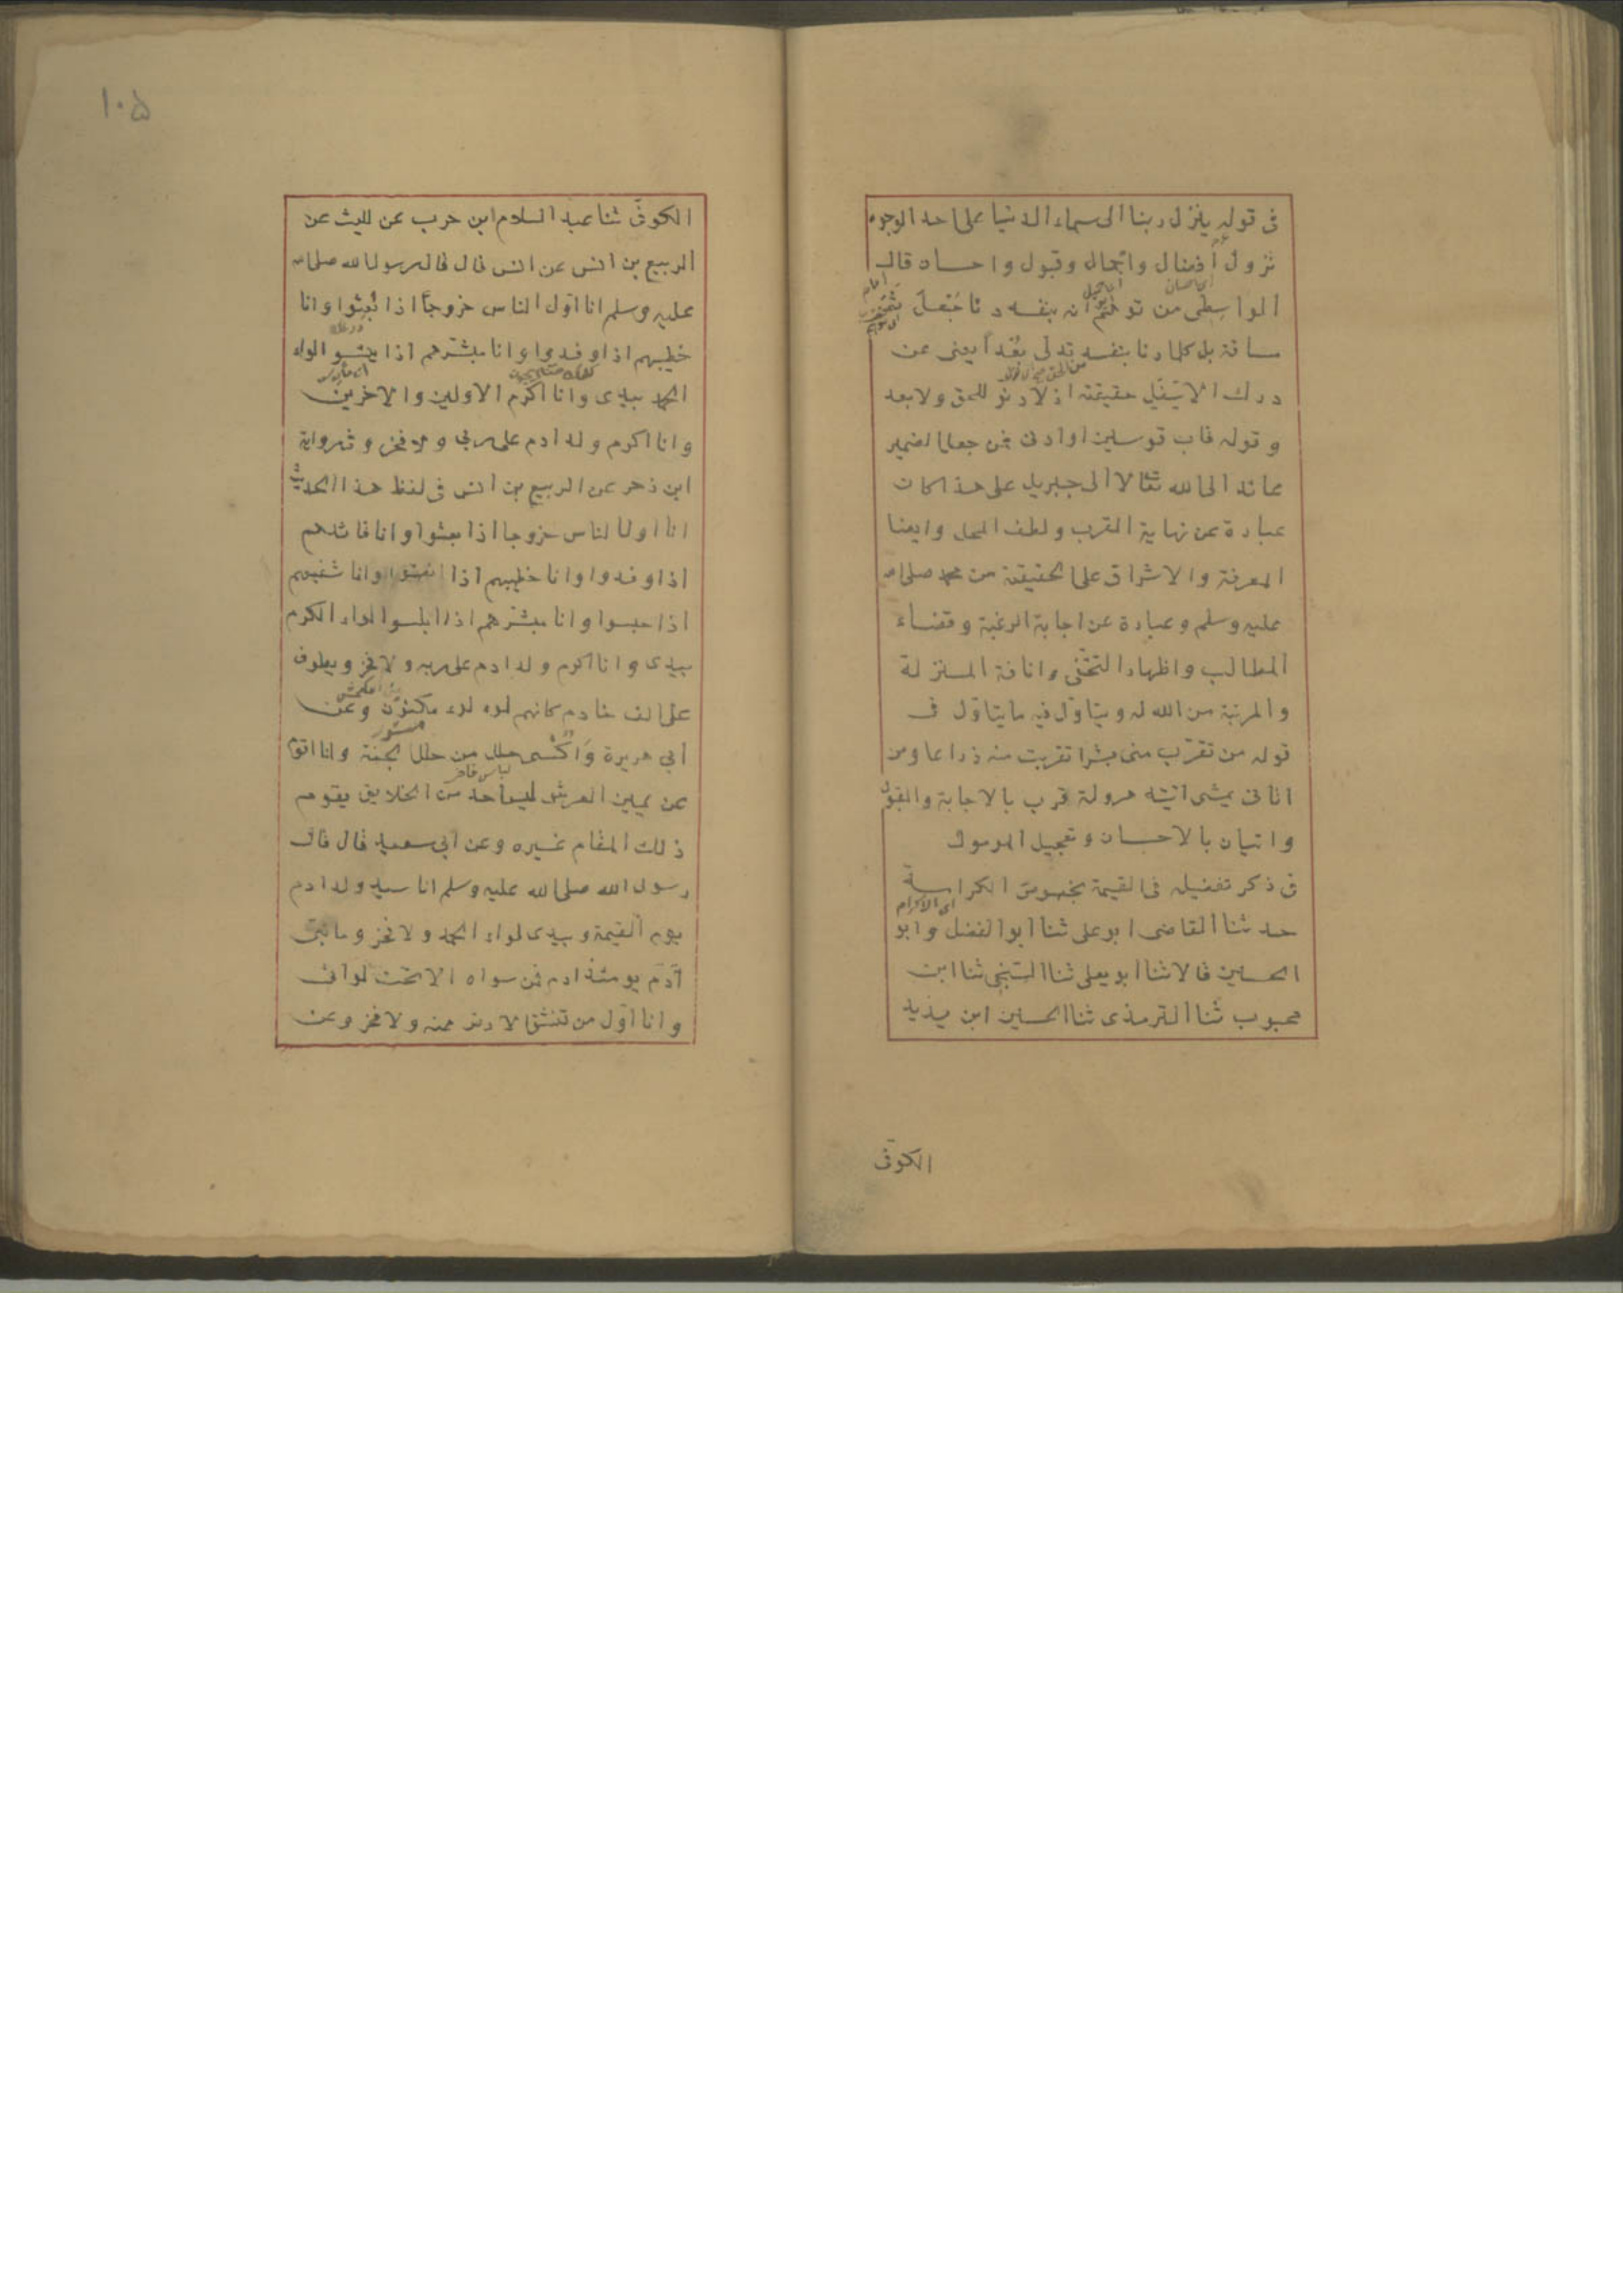 فى قوله ينزل ربنا الى سماء الدنيا على احد الوجوه
نزول افضال واجمال وقبول واحسان قال
الواسطى من توهم انه بنفسه دنا جعل ثم
مسافة بل كلما دنا بنفسه تدلى بعدا يعنى عن
درك حقيقته اذ لا دنو للحق ولا بعد
وقوله قاب قوسين او ادنى فمن جعل الضمير
عائدا الى الله تعالا لا الى جبريل على هذا كان
عبارة عن نهاية القرب ولطف المحل وايضا
المعرفة والاشراق على الحقيقة من محمد صلى الله
عليه وسلم وعبارة عن اجابة الرغبة وقضاء
المطالب واظهار التحفى وانافة المنزلة
والمرتبة من الله له ويتاول فيه ما يتاول فى
قوله من تقرب منى شبرا تقربت منه ذراعا ومن
اتانى يمشى اتيته هرولة قرب بالاجابة والقبول
واتيان بالاحسان وتعجيل المرمول
فى ذكر تفضيله فى القيمة بخصوص الكرامة
اى الاكرام
حدثنا القاضى ابو على ثنا ابو الفضل وابو
الحسين قالا ثنا ابو يعلى ثنا السنجى ثنا ابن
محبوب ثنا الترمذى ثنا الحسين ابن يزيد
الكوفى
١٠۵
الكوفى ثنا عبد السلام ابن حرب عن لليث عن
الربيع بن انس عن انس قال قال رسول الله صلى الله
عليه وسلم انا اول الناس خروجا اذا بعثوا وانا
خطيبهم اذا وفدوا وانا مبشرهم اذا الواء
الحمد بيدى وانا اكرم الاولين والاخرين
وانا اكرم ولد ادم على ربى ولا فخر و رواية
ابن زحر عن الربيع بن انس فى لفظ هذا الحديث
انا اول الناس خروجا اذا بعثوا وانا قائدهم
اذا وفدوا وانا خطيبهم اذا انصتوا وانا شفيعهم
اذا حبسوا وانا مبشرهم اذا ابلسوا لواء الكرم
بيدى وانا اكرم ولد ادم على ربه ولا فخر ويطوف
على الف خادم كانهم لوء لوء مكنون وعن
مستور
ابى هريرة واكسى حلل من حلل الجنة وانا اقوم
لباس فاخر
عن يمين العرش ليس احد من الخلايق يقوم
ذلك المقام غيره وعن ابى سعيد قال قال
رسول الله صلى الله عليه وسلم انا سيد ولد ادم
يوم القيمة وبيدى لواء الحمد ولا فخر وما نبى
آدم يومئذ ادم فمن سواه الا تحت لوائى
وانا اول من تنشق الارض عنه ولا فخر وعن